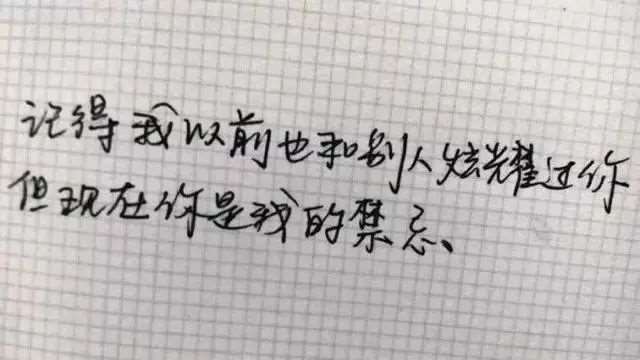 记得我以前也和别人炫耀过你
但现在你是我的禁忌、